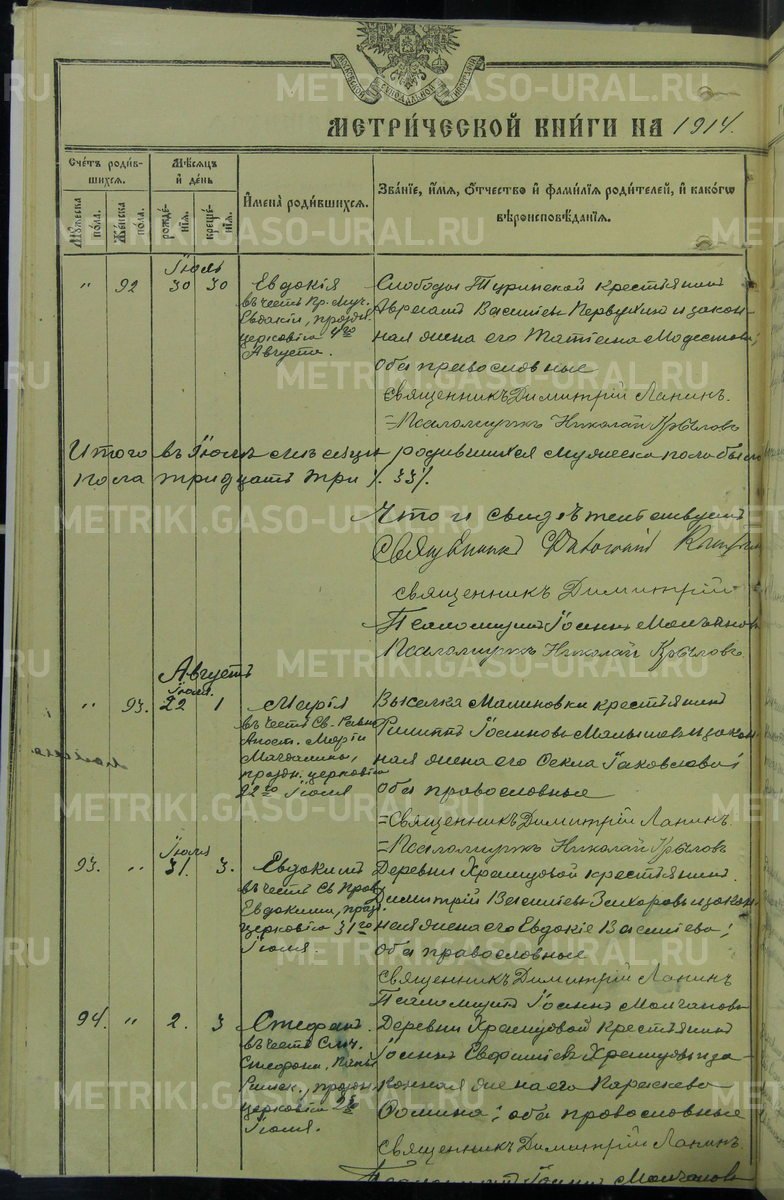 МЕТРИЧЕСКОЙ КНИГИ НА 1914.
Счетъ родив-
шихся.
Мѣсяцъ
и день
Имена родившихся.
Званіе, имя, отчество и фамилія родителей, и какого
вѣроисповѣданія.
Мужеска
пола.
Женска
пола.
рожде-
нія.
креще-
нія.
Іюль
" 92 30 30
Евдокія
въ честь Пр. Муч.
Евдокіи, праздн.
церковію 4го
Августа.
Слободы Туринской крестьянинъ
Василіевъ Первухинъ и закон-
ная жена его Татіана Модестова;
оба православные
Священникъ Димитрій Лапинъ.
=Псаломщикъ Николай Крыловъ
Итого въ Іюлѣ мѣсяцѣ родившихся мужеска пола было
пола тридцать три /. 33/.
Что и свидѣтельствуютъ
Священникъ
священникъ Димитрій
Псаломщикъ Іоаннъ Молчановъ
Псаломщикъ Николай Крыловъ
Августъ
Іюля.
" 93. 22 1
Марія
въ честь Св. Равно
Апост. Маріи
Магдалины,
праздн. церковію
22го Іюля
Выселка Малиновки крестьянинъ
Филиппъ Іоанновъ Малышевъ и закон-
ная жена его Текла Іаковлева;
оба православные
=Священникъ Димитрій Лапинъ.
=Псаломщикъ Николай Крыловъ
Іюля
93. " 31. 3.
Евдокимъ
въ честь Св. Прав.
Евдокима, празд.
церковію 31го
Іюля.
Деревни Храмцовой крестьянинъ
Димитрій Василіевъ Захаровъ и закон-
ная жена его Евдокія Василіева;
оба православные
Священникъ Димитрій Лапинъ
Псаломщикъ Іоаннъ Молчановъ
94. " 2. 3
Стефанъ.
въ честь Смуч.
Стефана, Папы
Римск., праздн.
церковію 2го
Іюля.
Деревни Храмцовой крестьянинъ
Іоаннъ Евфиміевъ Храмцовъ и за-
конная жена его Параскева
Фомина; оба православные
Священникъ Димитрій Лапинъ
Псаломщикъ Іоаннъ Молчановъ
METRIKI.GASO-URAL.RU